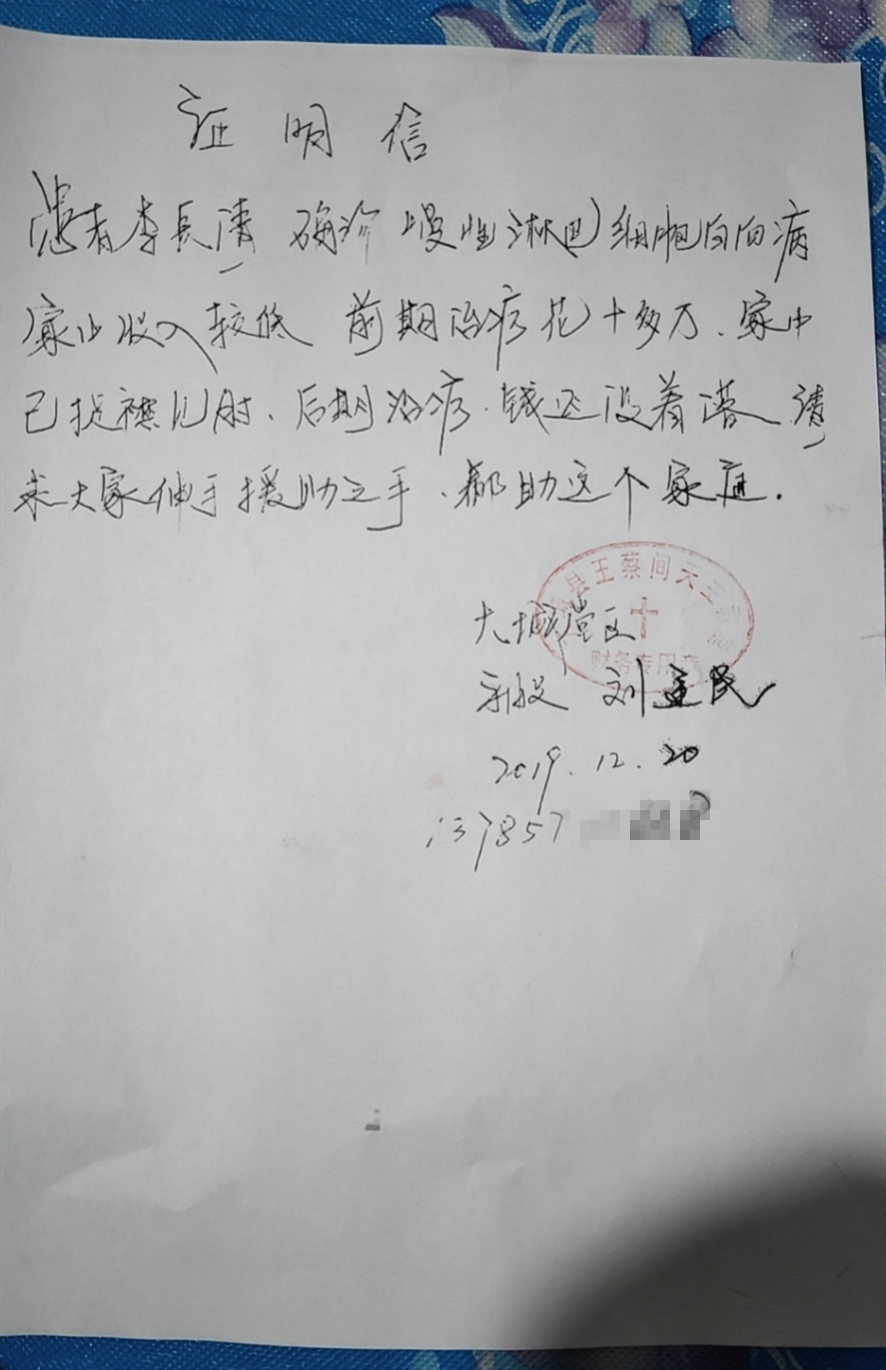 证明信
患者李长清 确诊慢性淋巴细胞白血病
家中收入较低 前期治疗花十多万、家中
已捉襟见肘、后期治疗、钱还没着落、请
求大家伸手援助之手、帮助这个家庭.
县王蔡间天主教
财务专用章
大城堂区
刘建民
2019.12.20
137857